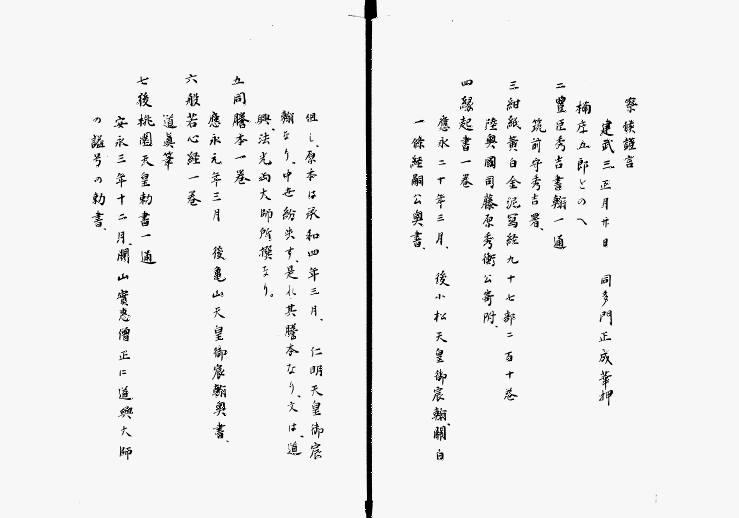 察候謹言
建武三正月廿日 同多門正成華押
楠庄五郎とのへ
二豊臣秀吉書翰一通
筑前守秀吉署、
三紺紙黄白金泥写経九十七部二百十巻
陸奥國司藤原秀衡公寄附、
四縁起書一巻
應永二十年三月、 後小松天皇御宸翰、關白
一條経嗣公奥書、
但し、原本は承和四年三月、 仁明天皇御宸
翰なり、中世紛失す、是れ其謄本なり、文は、道
興、法光両大師所撰なり。
五同謄本一巻
應永元年三月 後亀山天皇御宸翰奥書、
六般若心経一巻
道真筆
七後桃園天皇勅書一通
安永三年十二月、開山實恵僧正に道興大師
の諡号の勅書、